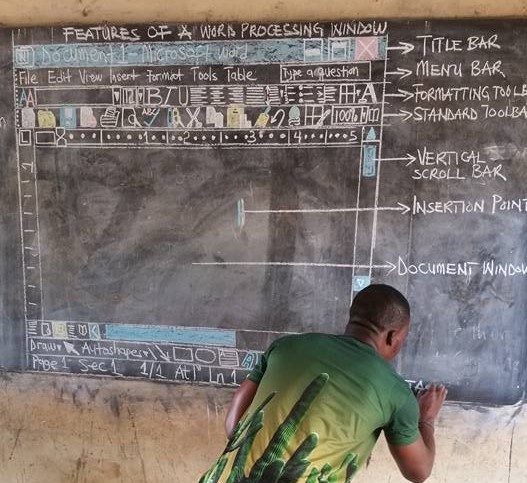 FEATURES OF A WORD PROCESSING WINDOW
W Document 1 - Microsoft word
TITLE BAR
File Edit View Insert format Tools Table Type a question
MENU BAR
AA B I U A
FORMATTING TOOLB
ABC 100%
STANDARD TOOLBA
1 2 3 4 5
VERTICAL
SCROLL BAR
INSERTION POINT
DOCUMENT WINDOW
Draw Autoshapes A
Page 1 Sec 1 1/1 At ln 1
TA